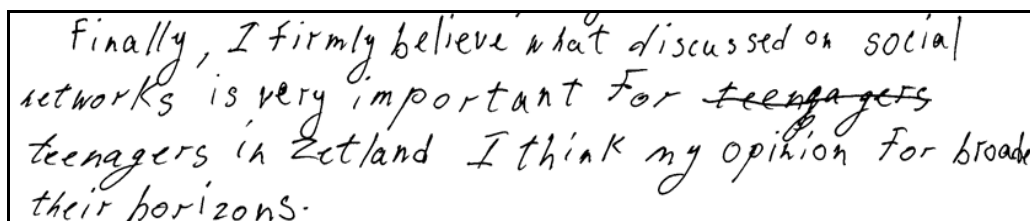 Finally, I firmly believe what discussed on social
networks is very important for teengagers
teenagers in Zetland I think my opinion for broade
their horizons.